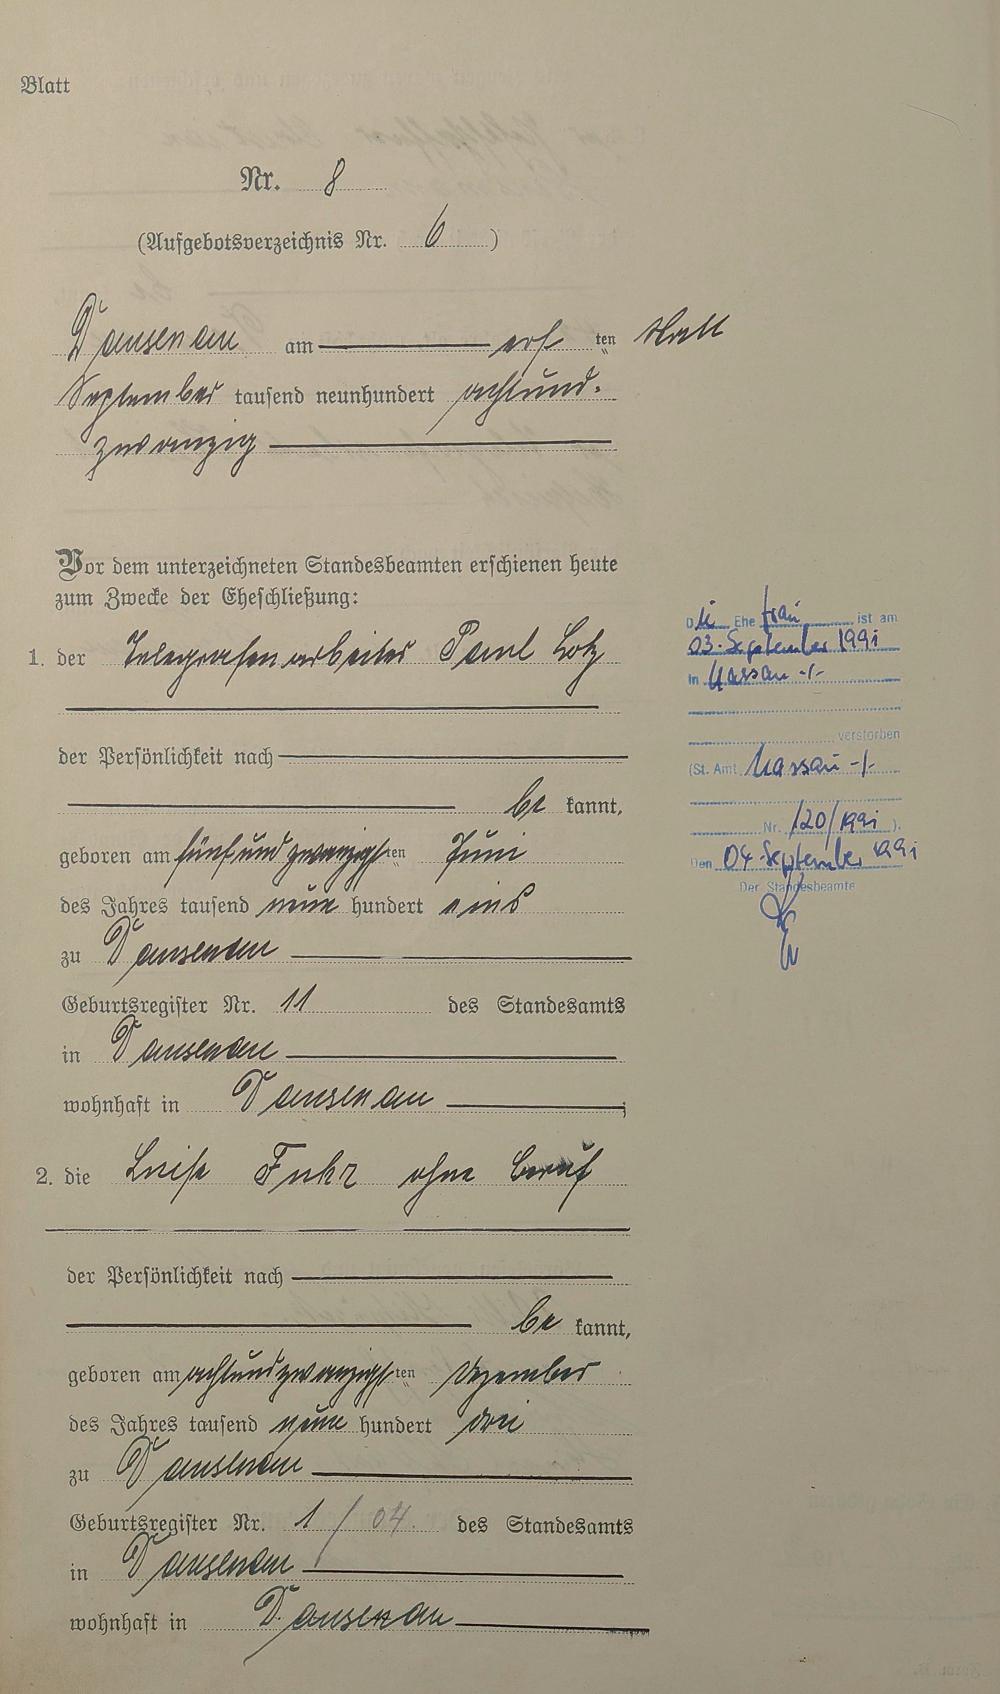 Blatt
Nr. 8
(Aufgebotsverzeichnis Nr. 6)
Dausenau am erſ ten
September tausend neunhundert achtund-
zwanzig
Vor dem unterzeichneten Standesbeamten erschienen heute
zum Zwecke der Eheschließung:
1. der Telegrafenarbeiter Paul Lotz
der Persönlichkeit nach
be kannt,
geboren am fünfundzwanzigs ten Juni
des Jahres tausend neun hundert eins
zu Dausenau
Geburtsregister Nr. 11 des Standesamts
in Dausenau
wohnhaft in Dausenau;
2. die Luise Fuhr ohne Beruf
der Persönlichkeit nach
be kannt,
geboren am achtundzwanzigs ten Dezember
des Jahres tausend neun hundert drei
zu Dausenau
Geburtsregister Nr. 1/04 des Standesamts
in Dausenau
wohnhaft in Dausenau
Die Ehefrau ist am
03. September 1991
in Nassau -/-
verstorben
(St. Amt Nassau -/-
Nr. 120/1991).
Den 04. September 1991
Der Standesbeamte